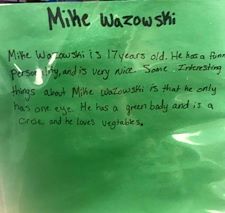 Mike Wazowski
Mike Wazowski is 17 years old. He has a funn
personality, and is very nice. Some Interesting
things about Mike Wazowski is that he only
has one eye. He has a green body and is a
and he loves vegtables.